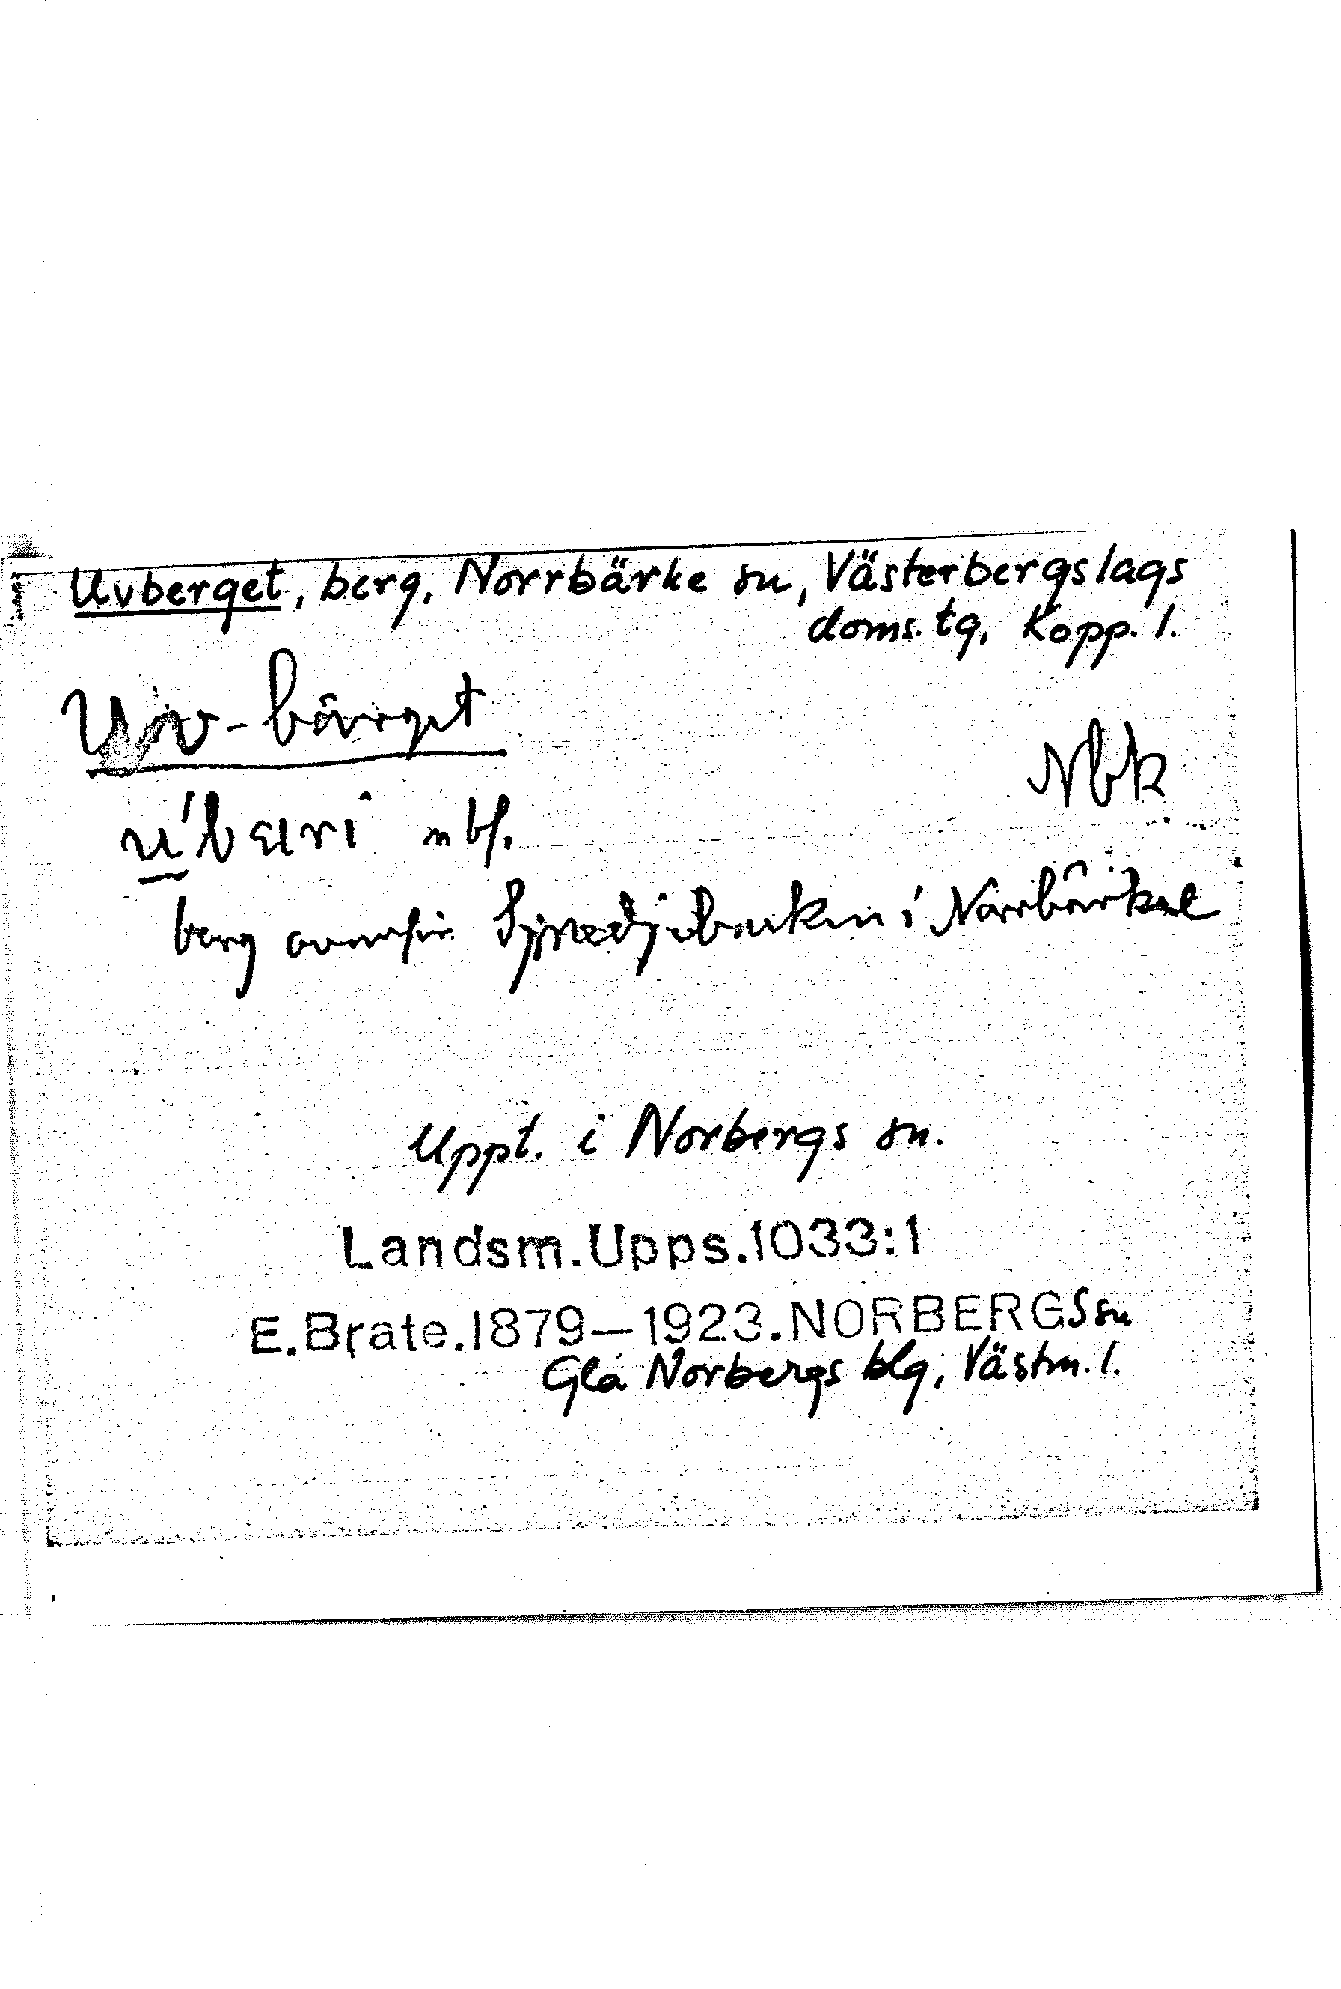 Uvberget, berg, Norrbärke sn, Västerbergslags
doms. tg, Kopp. l.
Uv-bärget
Nbk
nbf.
berg ovanför Smedjebacken i Norrbärke
Uppt. i Norbergs sn.
Landsm.Upps.1033:1
E.Brate.1879–1923.NORBERGS sn
Gla Norbergs blg, Västm. l.